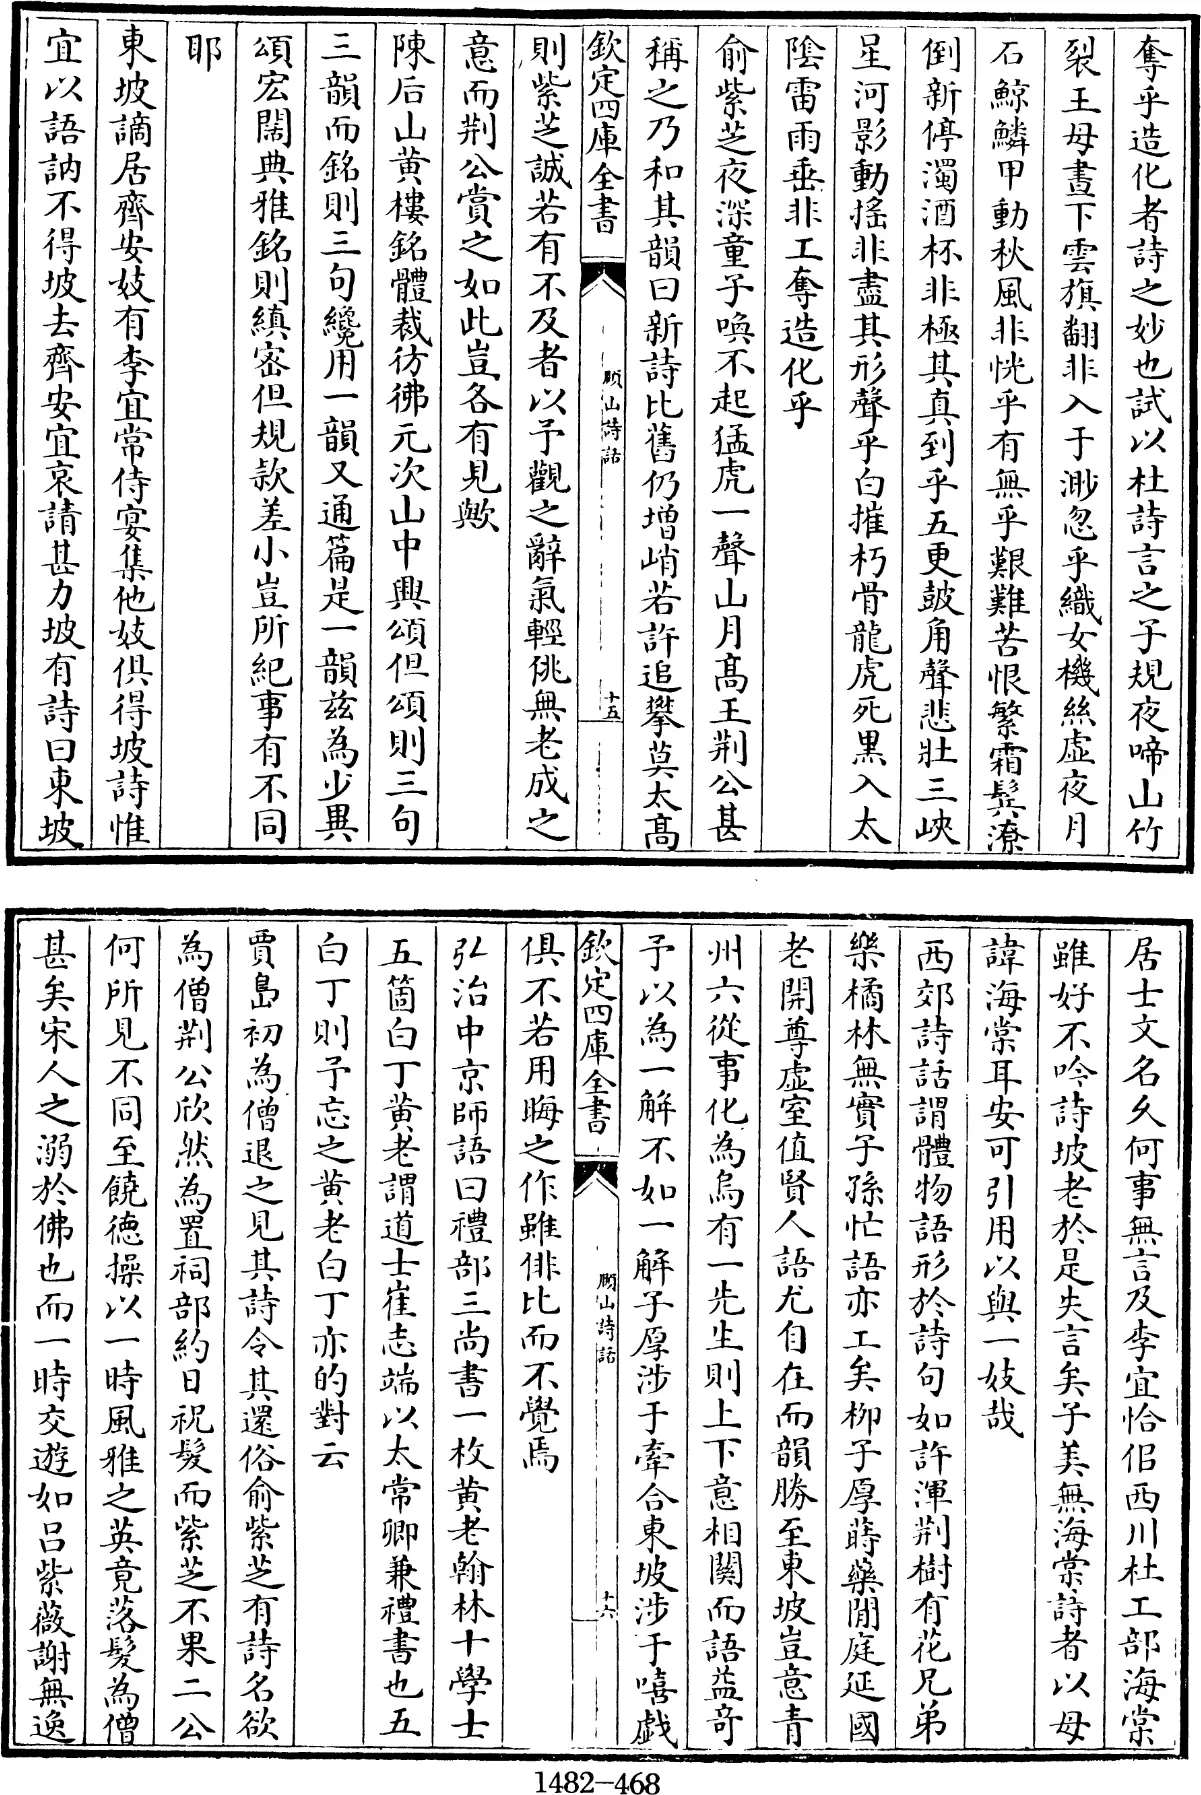 奪乎造化者詩之妙也試以杜詩言之子規夜啼山竹
裂王母晝下雲旗翻非入于渺忽乎織女機絲虛夜月
石鯨鱗甲動秋風非恍乎有無乎艱難苦恨繁霜鬂潦
倒新停濁酒杯非極其真到乎五更鼓角聲悲壯三峽
星河影動搖非盡其形聲乎白摧朽骨龍虎死黒入太
陰雷雨垂非工奪造化乎
俞紫芝夜深童子喚不起猛虎一聲山月髙王荆公甚
稱之乃和其韻曰新詩比舊仍增峭若許追攀莫太髙
欽定四庫全書
頋山詩話
十五
則紫芝誠若有不及者以予觀之辭氣輕佻無老成之
意而荆公賞之如此豈各有見歟
陳后山黄樓銘體裁彷彿元次山中興頌但頌則三句
三韻而銘則三句纔用一韻又通篇是一韻兹為少異
頌宏闊典雅銘則縝宻但規款差小豈所紀事有不同
耶
東坡謫居齊安妓有李宜常侍宴集他妓俱得坡詩惟
宜以語訥不得坡去齊安宜哀請甚力坡有詩曰東坡
居士文名乆何事無言及李宜恰佀西川杜工部海棠
雖好不吟詩坡老於是失言矣子美無海棠詩者以母
諱海棠耳安可引用以與一妓哉
西郊詩話謂體物語形於詩句如許渾荆樹有花兄弟
樂橘林無實子孫忙語亦工矣栁子厚蒔藥閒庭延國
老開尊虛室值賢人語尤自在而韻勝至東坡豈意青
州六從事化為烏有一先生則上下意相關而語益奇
予以為一解不如一解子厚涉于牽合東坡涉于嘻戯
欽定四庫全書
頋山詩話
十六
俱不若用晦之作雖俳比而不覺焉
弘治中京師語曰禮部三尚書一枚黄老翰林十學士
五箇白丁黄老謂道士崔志端以太常卿兼禮書也五
白丁則予忘之黄老白丁亦的對云
賈島初為僧退之見其詩令其還俗俞紫芝有詩名欲
為僧荆公欣然為置祠部約日祝髪而紫芝不果二公
何所見不同至饒徳操以一時風雅之英竟落髪為僧
甚矣宋人之溺於佛也而一時交遊如吕紫薇謝無逸
1482-468